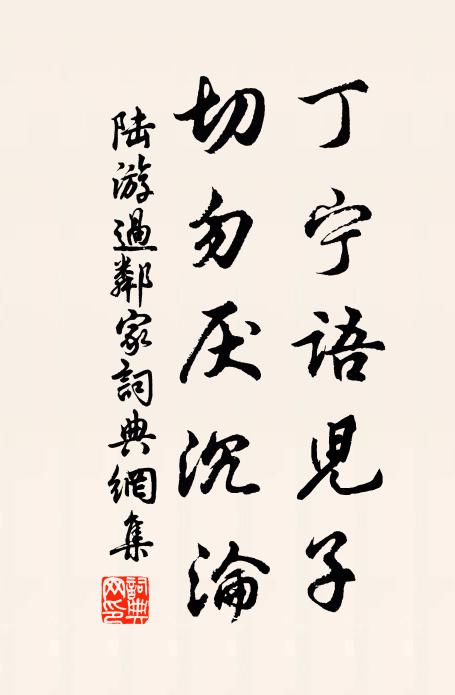 丁宁語児子
切勿厌沉淪
陆游過鄰家詞典網集
詞典网印